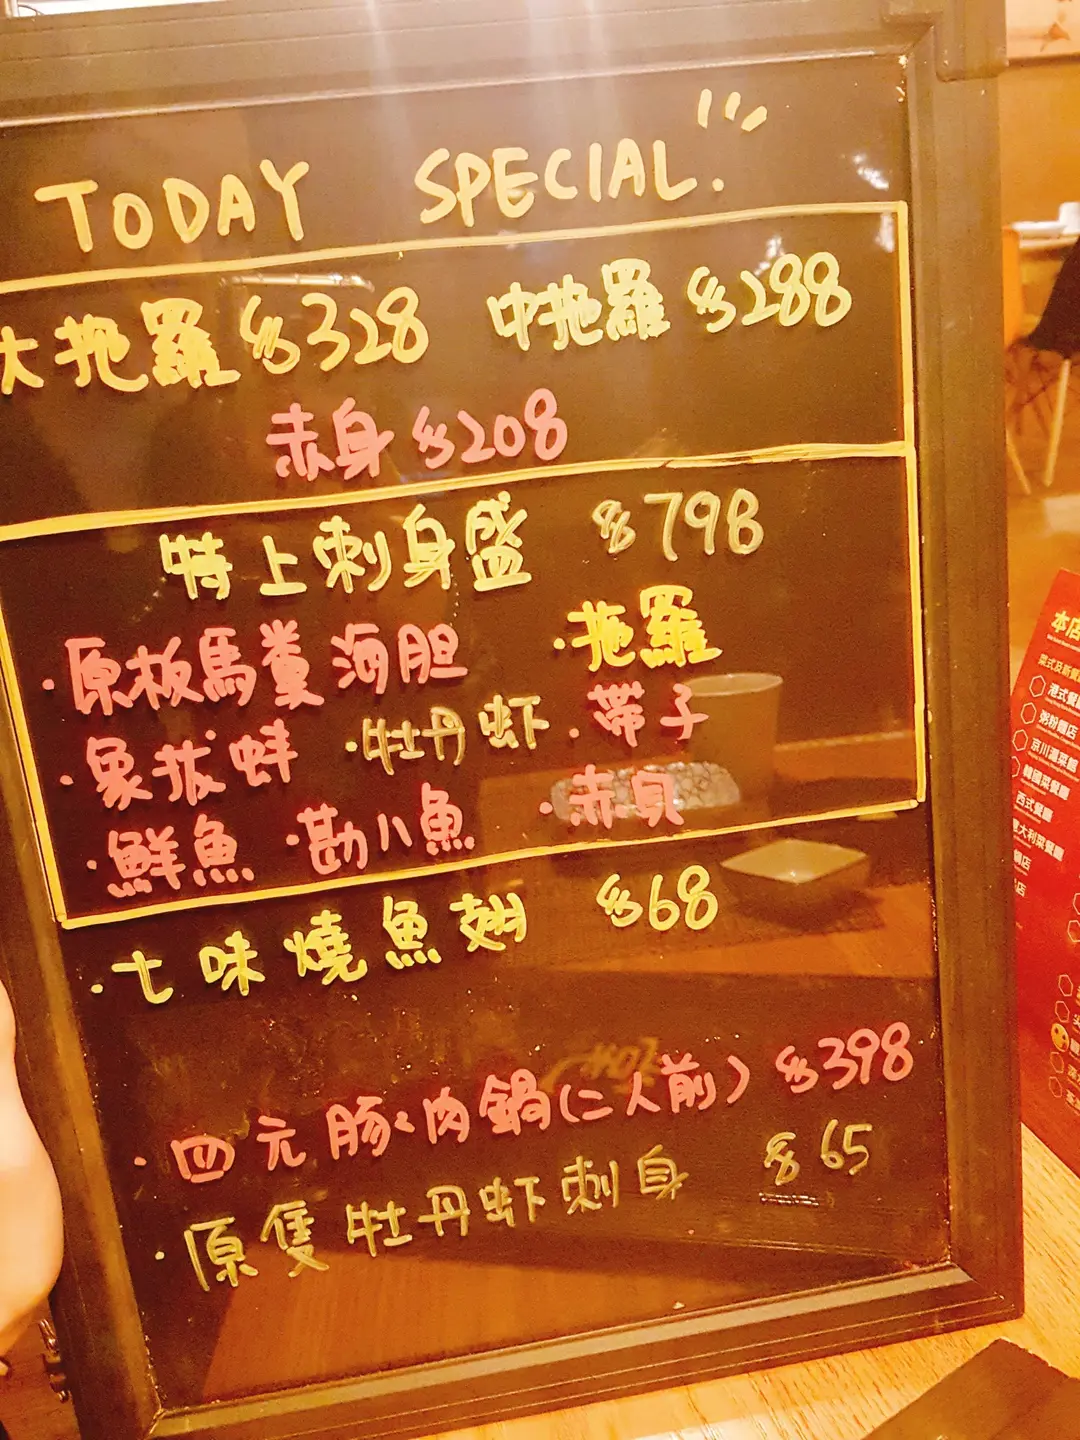 TODAY SPECIAL.
大拖羅 $328 中拖羅 $288
赤身 $208
特上刺身盛 $798
·原板馬糞海胆 ·拖羅
·象拔蚌 ·牡丹虾 ·帶子
·鮮魚 ·勘八魚 ·赤貝
·七味燒魚翅 $68
·四元豚肉鍋(二人前) $398
·原隻牡丹虾刺身 $65
本店
菜式及新
港式餐
粥粉麵店
京川滬菜館
韓國菜餐廳
西式餐廳
意大利菜餐廳